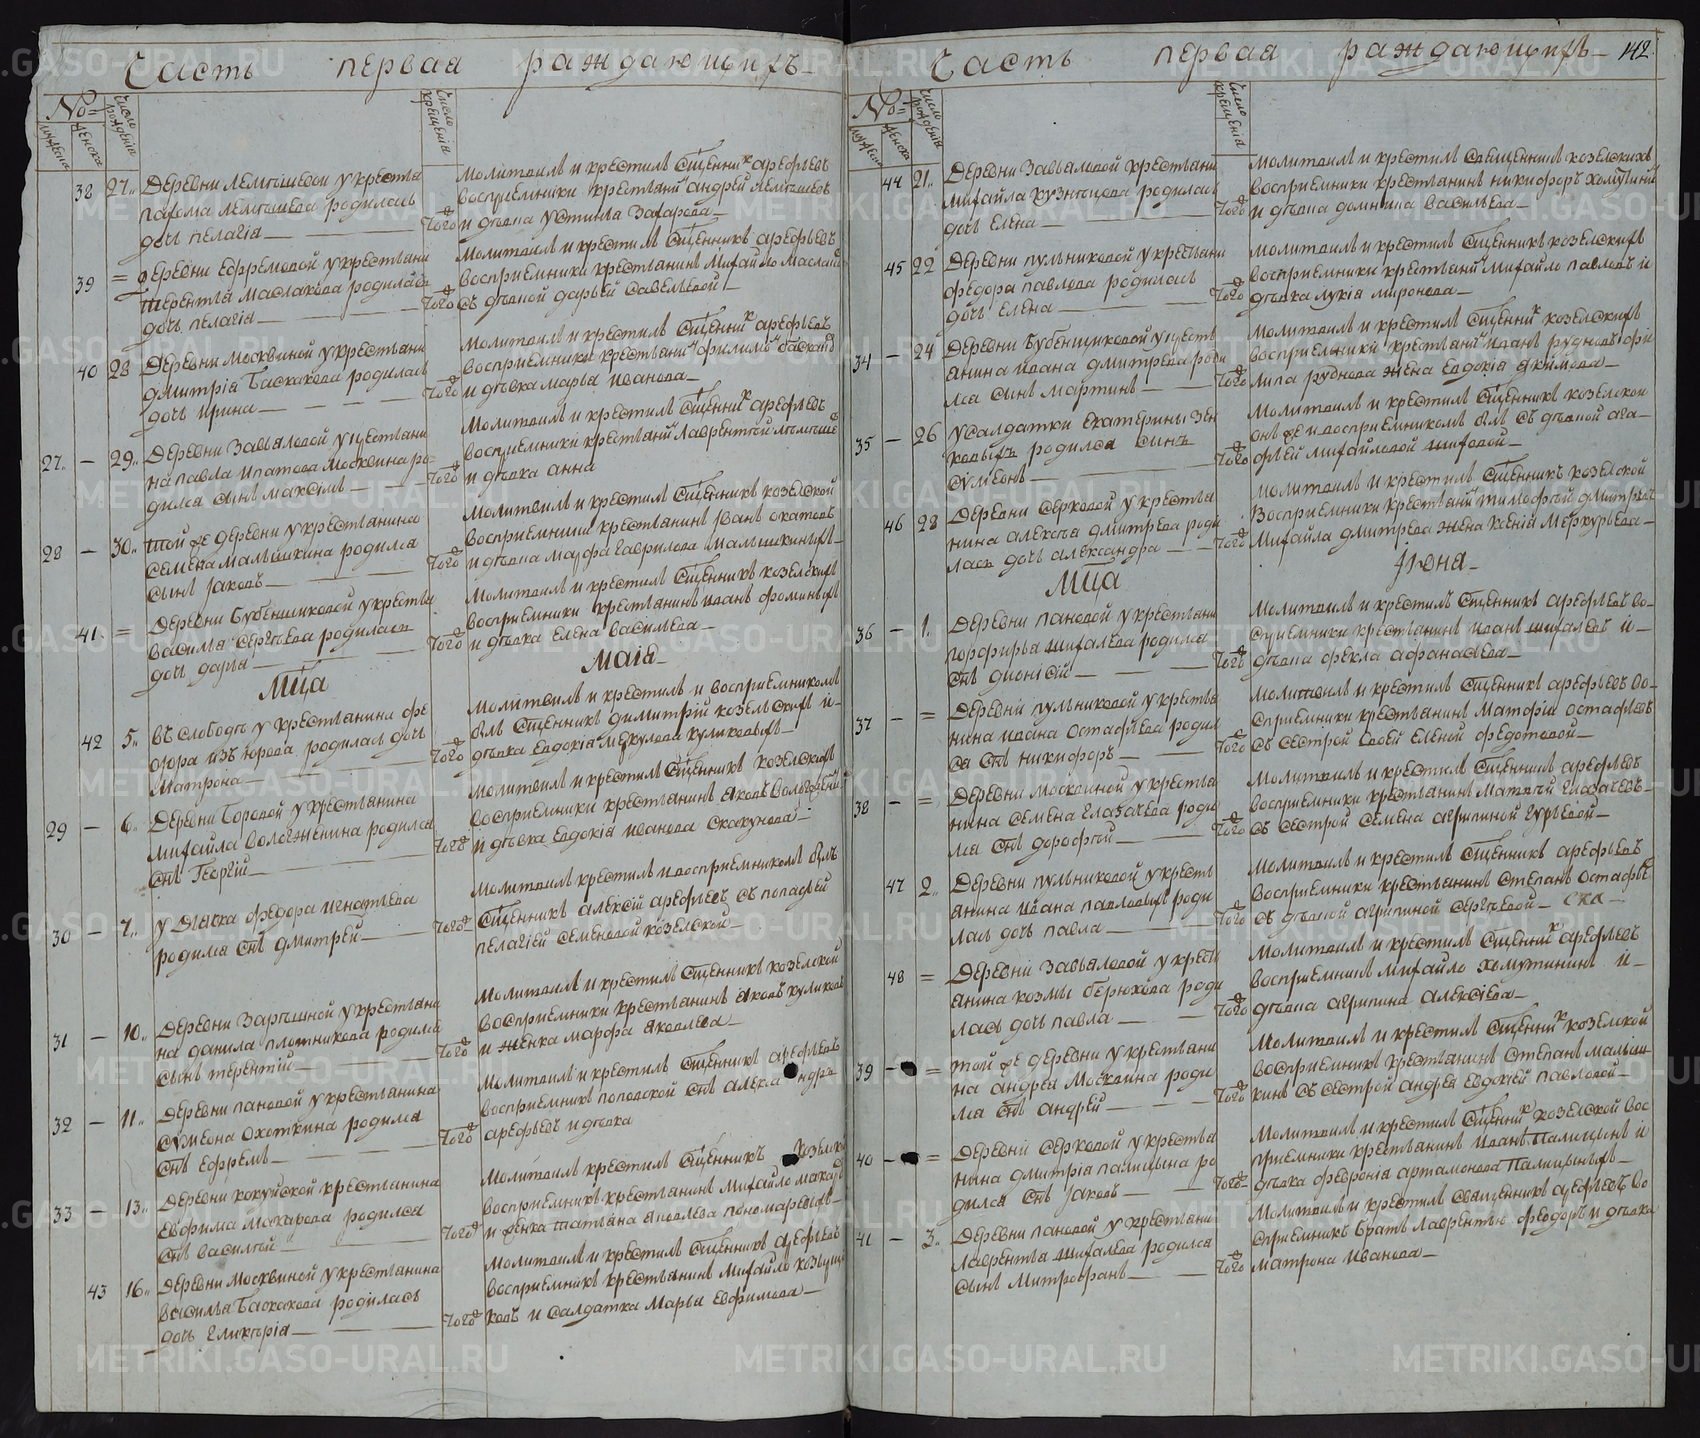 Часть первая раждающихъ
No=
мужеска
женска
число рождения
число крещенія
38 27. Деревни Лемешевой у крестья
пафома Лемешева родилась
дочь пелагія
того
Молитвилъ и крестилъ Сщенникъ арефьевъ
восприемники крестьянинъ андрей Лемешевъ
и девка устинья Захарова
39 = Деревни Ефремовой у крестьяни
терентья Маслакова родилась
дочь пелагія
того
Молитвилъ и крестилъ Сщенникъ арефьевъ
восприемники крестьянинъ Михайло Маслаков
съ девкой дарьей Савельевой
40 28 Деревни Москвиной у крестьяни
дмитрія Баскакова родилась
дочь ирина
того
Молитвилъ и крестилъ Сщенникъ арефьевъ
восприемники крестьянинъ филипъ Баскаков
и девка марья иванова
27. — 29. Деревни Завьяловой у крестьяни
на павла ипатова Москвина ро
дился сынъ максимъ
того
Молитвилъ и крестилъ Сщенникъ арефьевъ
восприемники крестьянинъ Лаврентей
и девка анна
28 — 30. той же деревни у крестьянина
семена малышкина родился
сынъ Іаковъ
того
Молитвилъ и крестилъ Сщенникъ козелской
восприемники крестьянинъ Іванъ скатовъ
и девка марфа гаврилова малышкиныхъ
41. = Деревни Бубенщиковой у крестья
василья сергеева родилась
дочь дарья
того
Молитвилъ и крестилъ Сщенникъ козелскихъ
восприемники крестьянинъ иванъ фоминыхъ
и девка елена васильева
Мца Маія
42 5. въ слободе у крестьянина фе
дора изъюрова родилась дочь
Матрона
того
Молитвилъ и крестилъ и восприемникомъ
былъ Сщенникъ димитрій козельскихъ и
девка Евдокія меркулова куликовыхъ
29 — 6. Деревни Боровой у крестьянина
михайла вологженина родился
снъ Георгій
того
Молитвилъ и крестилъ Сщенникъ козелскихъ
восприемники крестьянинъ яковъ вологжени
и девка Евдокія иванова скакунова
30 — 7. у дьячка федора игнатьева
родился снъ дмитрей
того
Молитвилъ крестилъ и восприемникомъ былъ
Сщенникъ алексій арефьевъ съ попадьей
пелагіей семеновой козелской
31 — 10. Деревни Зарешной у крестьяни
на данила плотникова родился
сынъ терентій
того
Молитвилъ и крестилъ Сщенникъ козелской
восприемники крестьянинъ яковъ куликовъ
и женка марфа яковлева
32 — 11. Деревни пановой у крестьянина
сумеона охоткина родился
снъ ефремъ
того
Молитвилъ и крестилъ Сщенникъ арефьевъ
восприемникъ поповской снъ александръ
арефьевъ и девка
33 — 13. Деревни кокуйской крестьянина
Евфима макарова родился
снъ василей
того
Молитвилъ крестилъ Сщенникъ козелск
восприемникъ крестьянинъ михайло макар
и женка татьяна яковлева пономаревыхъ
43 16. Деревни Москвиной у крестьянина
василья Баскакова родилась
дочь гликерія
того
Молитвилъ и крестилъ Сщенникъ арефьевъ
восприемникъ крестьянинъ михайло
ковъ и салдатка Марья Евфимова
Часть первая раждающихъ 142.
No=
мужеска
женска
число рождения
число крещенія
44 21. Деревни Завьяловой крестьяни
михайла кузнецова родилась
дочь елена
того
Молитвилъ и крестилъ Священникъ козелскихъ
восприемники крестьянинъ никифоръ хомутини
и девка домнина васильева
45 22 Деревни пульниковой у крестьяни
федора павлова родилась
дочь елена
того
Молитвилъ и крестилъ Сщенникъ козелскихъ
восприемники крестьянинъ михайло павловъ и
девка лукія миронова
34 — 24 Деревни Бубенщиковой у крестъ
янина ивана дмитрева роди
лся сынъ мартинъ
того
Молитвилъ и крестилъ Сщенникъ козелскихъ
восприемники крестьянинъ иванъ рудновъ фи
липа руднова жена евдокія якимова
35 — 26 у салдатки екатерины зен
ковыхъ родился сынъ
Сумеонъ
того
Молитвилъ и крестилъ Сщенникъ козелской
онъ же и восприемникомъ былъ съ девкой ага-
фьей михайловой
46 28 Деревни серковой у крестья
нина алексея дмитрева роди
лась дочь александра
того
Молитвилъ и крестилъ Сщенникъ козелской
Восприемники крестьянинъ тимофей дмитрев
михайла дмитрева жена ксенія меркурьева
Мца Іюня
36 — 1. Деревни пановой у крестьяни
порфирья шихалева родился
снъ дионісій
того
Молитвилъ и крестилъ Сщенникъ арефьевъ во-
сприемники крестьянинъ иванъ шихалевъ и
девка фекла афанасьева
37 — = Деревни пульниковой у крестья
нина ивана остафьева родил
ся снъ никифоръ
того
Молитвилъ и крестилъ Сщенникъ арефьевъ во-
сприемники крестьянинъ Матфій остафьевъ
съ сестрой своей еленой федотовой
38 — = Деревни москвиной у крестья
нина семена глазачева роди
лся снъ дорофей
того
Молитвилъ и крестилъ Сщенникъ арефьевъ
восприемники крестьянинъ матвей глазачевъ
съ сестрой семена агрипиной гурьевой
47 2. Деревни пульниковой у крестъ
янина ивана павловыхъ роди
лась дочь павла
того
Молитвилъ и крестилъ Сщенникъ арефьевъ
восприемники крестьянинъ степанъ остафьев
съ девкой агрипиной сергеевой
48 = Деревни Завьяловой у кресть
янина козмы берюхова роди
лась дочь павла
того
Молитвилъ и крестилъ Сщенникъ арефьевъ
восприемникъ михайло хомутининъ и
девка агрипина алексіева
39 — = той же деревни у крестьяни
на андрея москвина роди
лся снъ андрей
того
Молитвилъ и крестилъ Сщенникъ козелской
восприемникъ крестьянинъ степанъ малыш
кинъ съ сестрой андрея евдокіей павловой
40 — = Деревни серковой у крестья
нина дмитрія палицына ро
дился снъ іаковъ
того
Молитвилъ и крестилъ Сщенникъ козелской вос
приемники крестьянинъ иванъ палицынъ и
девка февронія артамонова палицыныхъ
41 — 3. Деревни пановой у крестьяни
Лаврентья шихалева родился
сынъ Митрофанъ
того
Молитвилъ и крестилъ Священникъ арефьевъ во
сприемникъ братъ лаврентью феодоръ и девка
матрона иванова